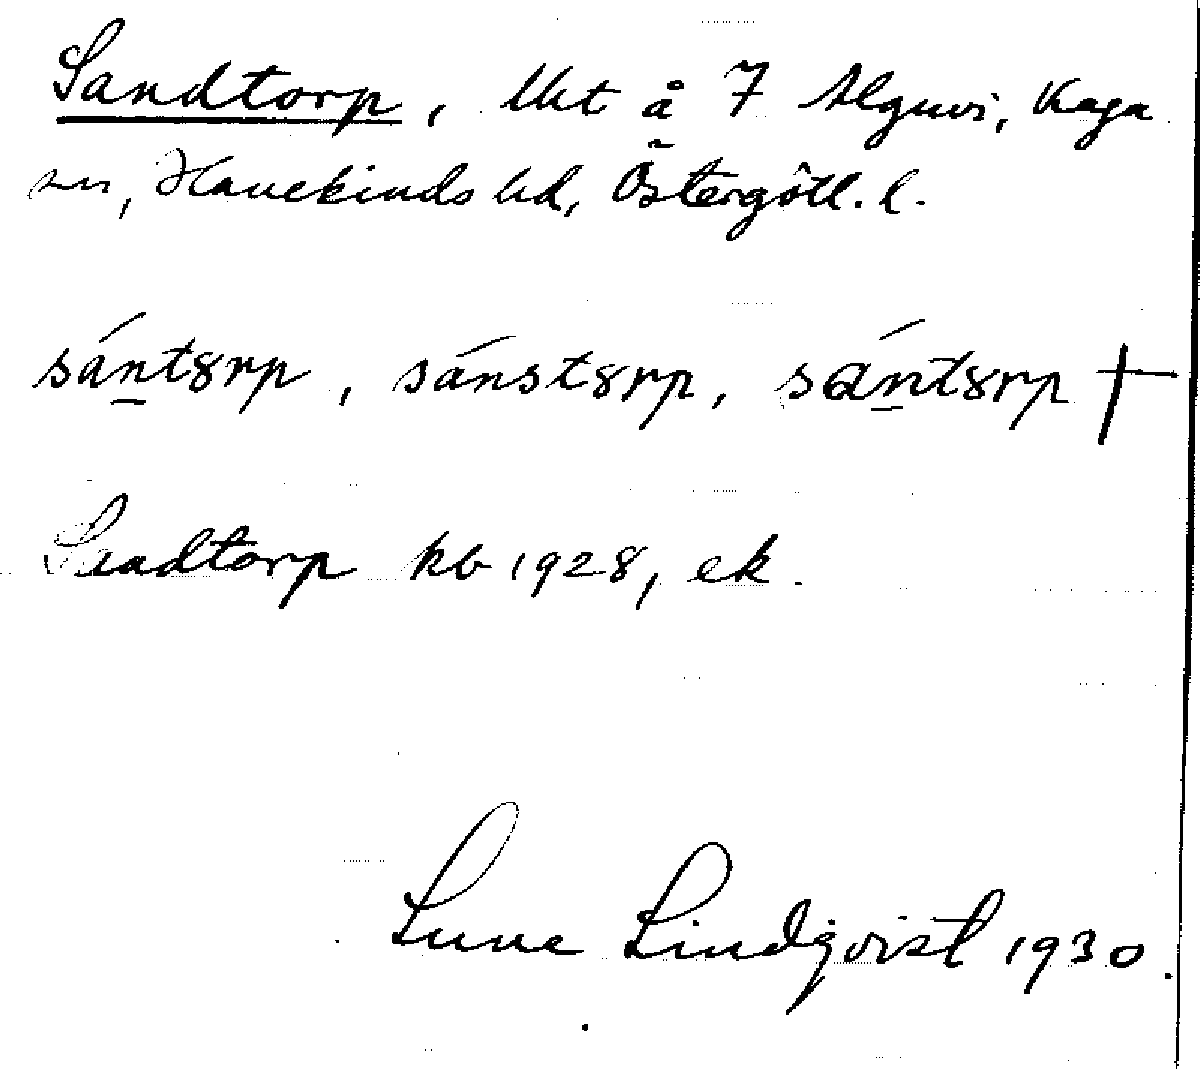 Sandtorp, lht å 7 Älguvi, Kaga
sn, Hanekinds hd, Östergötl. l.
sán̲tȣrp, sánstȣrp, sɑ́n̲tȣrp †
Sandtorp kb 1928, ek.
Sune Lindqvist 1930.